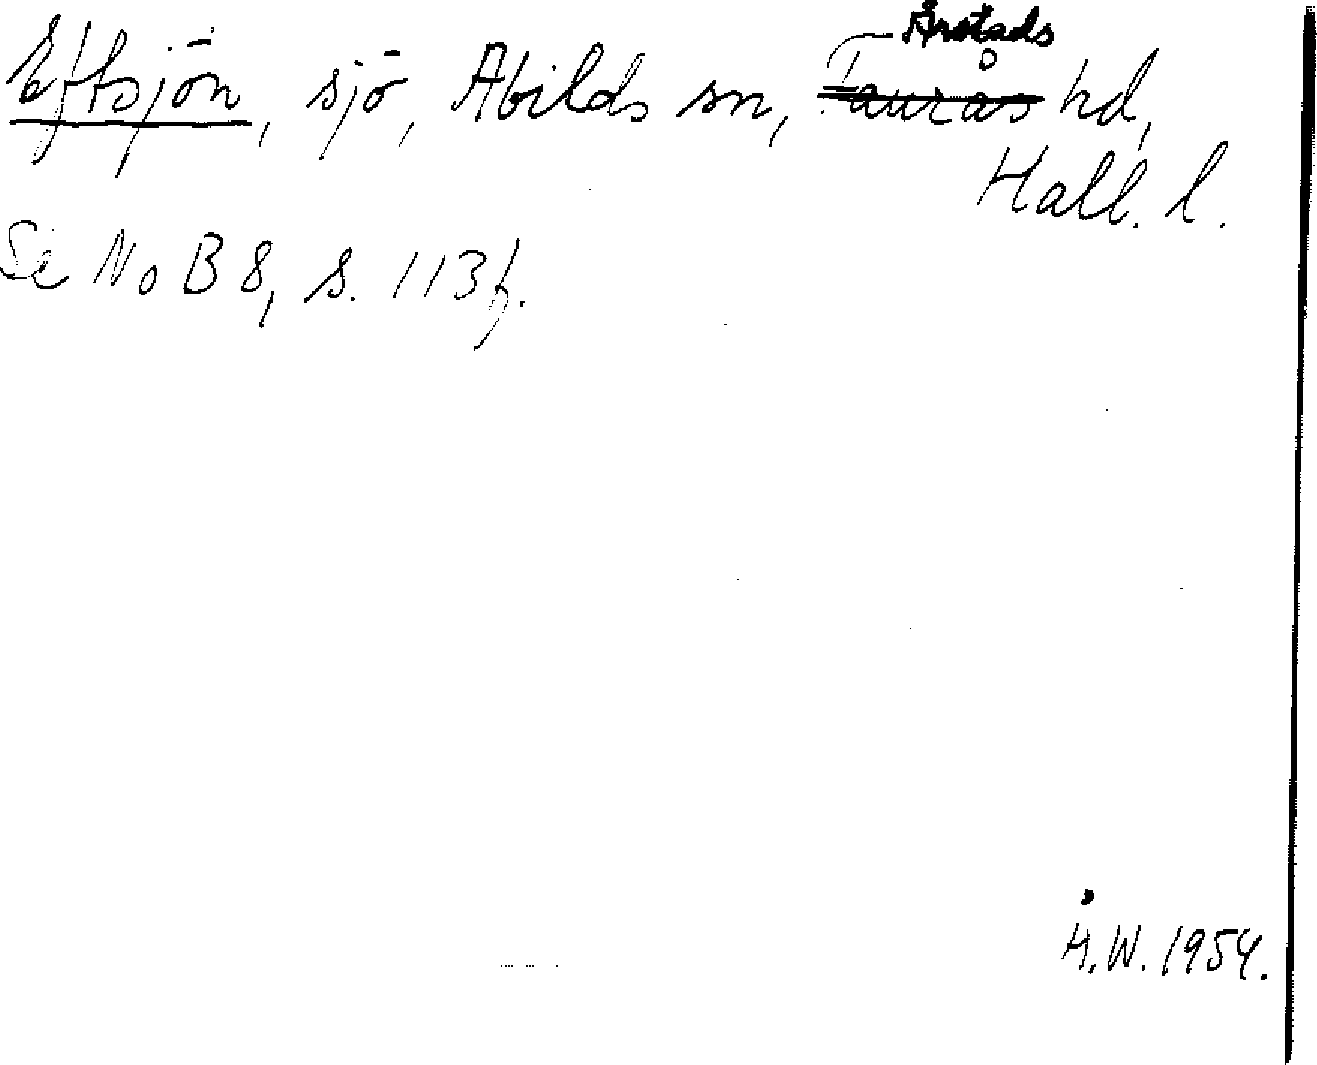 Årstads
Eftsjön, sjö, Abilds sn, Faurås hd,
Hall. l.
Se NoB 8, s. 113 f.
Å.W. 1954.